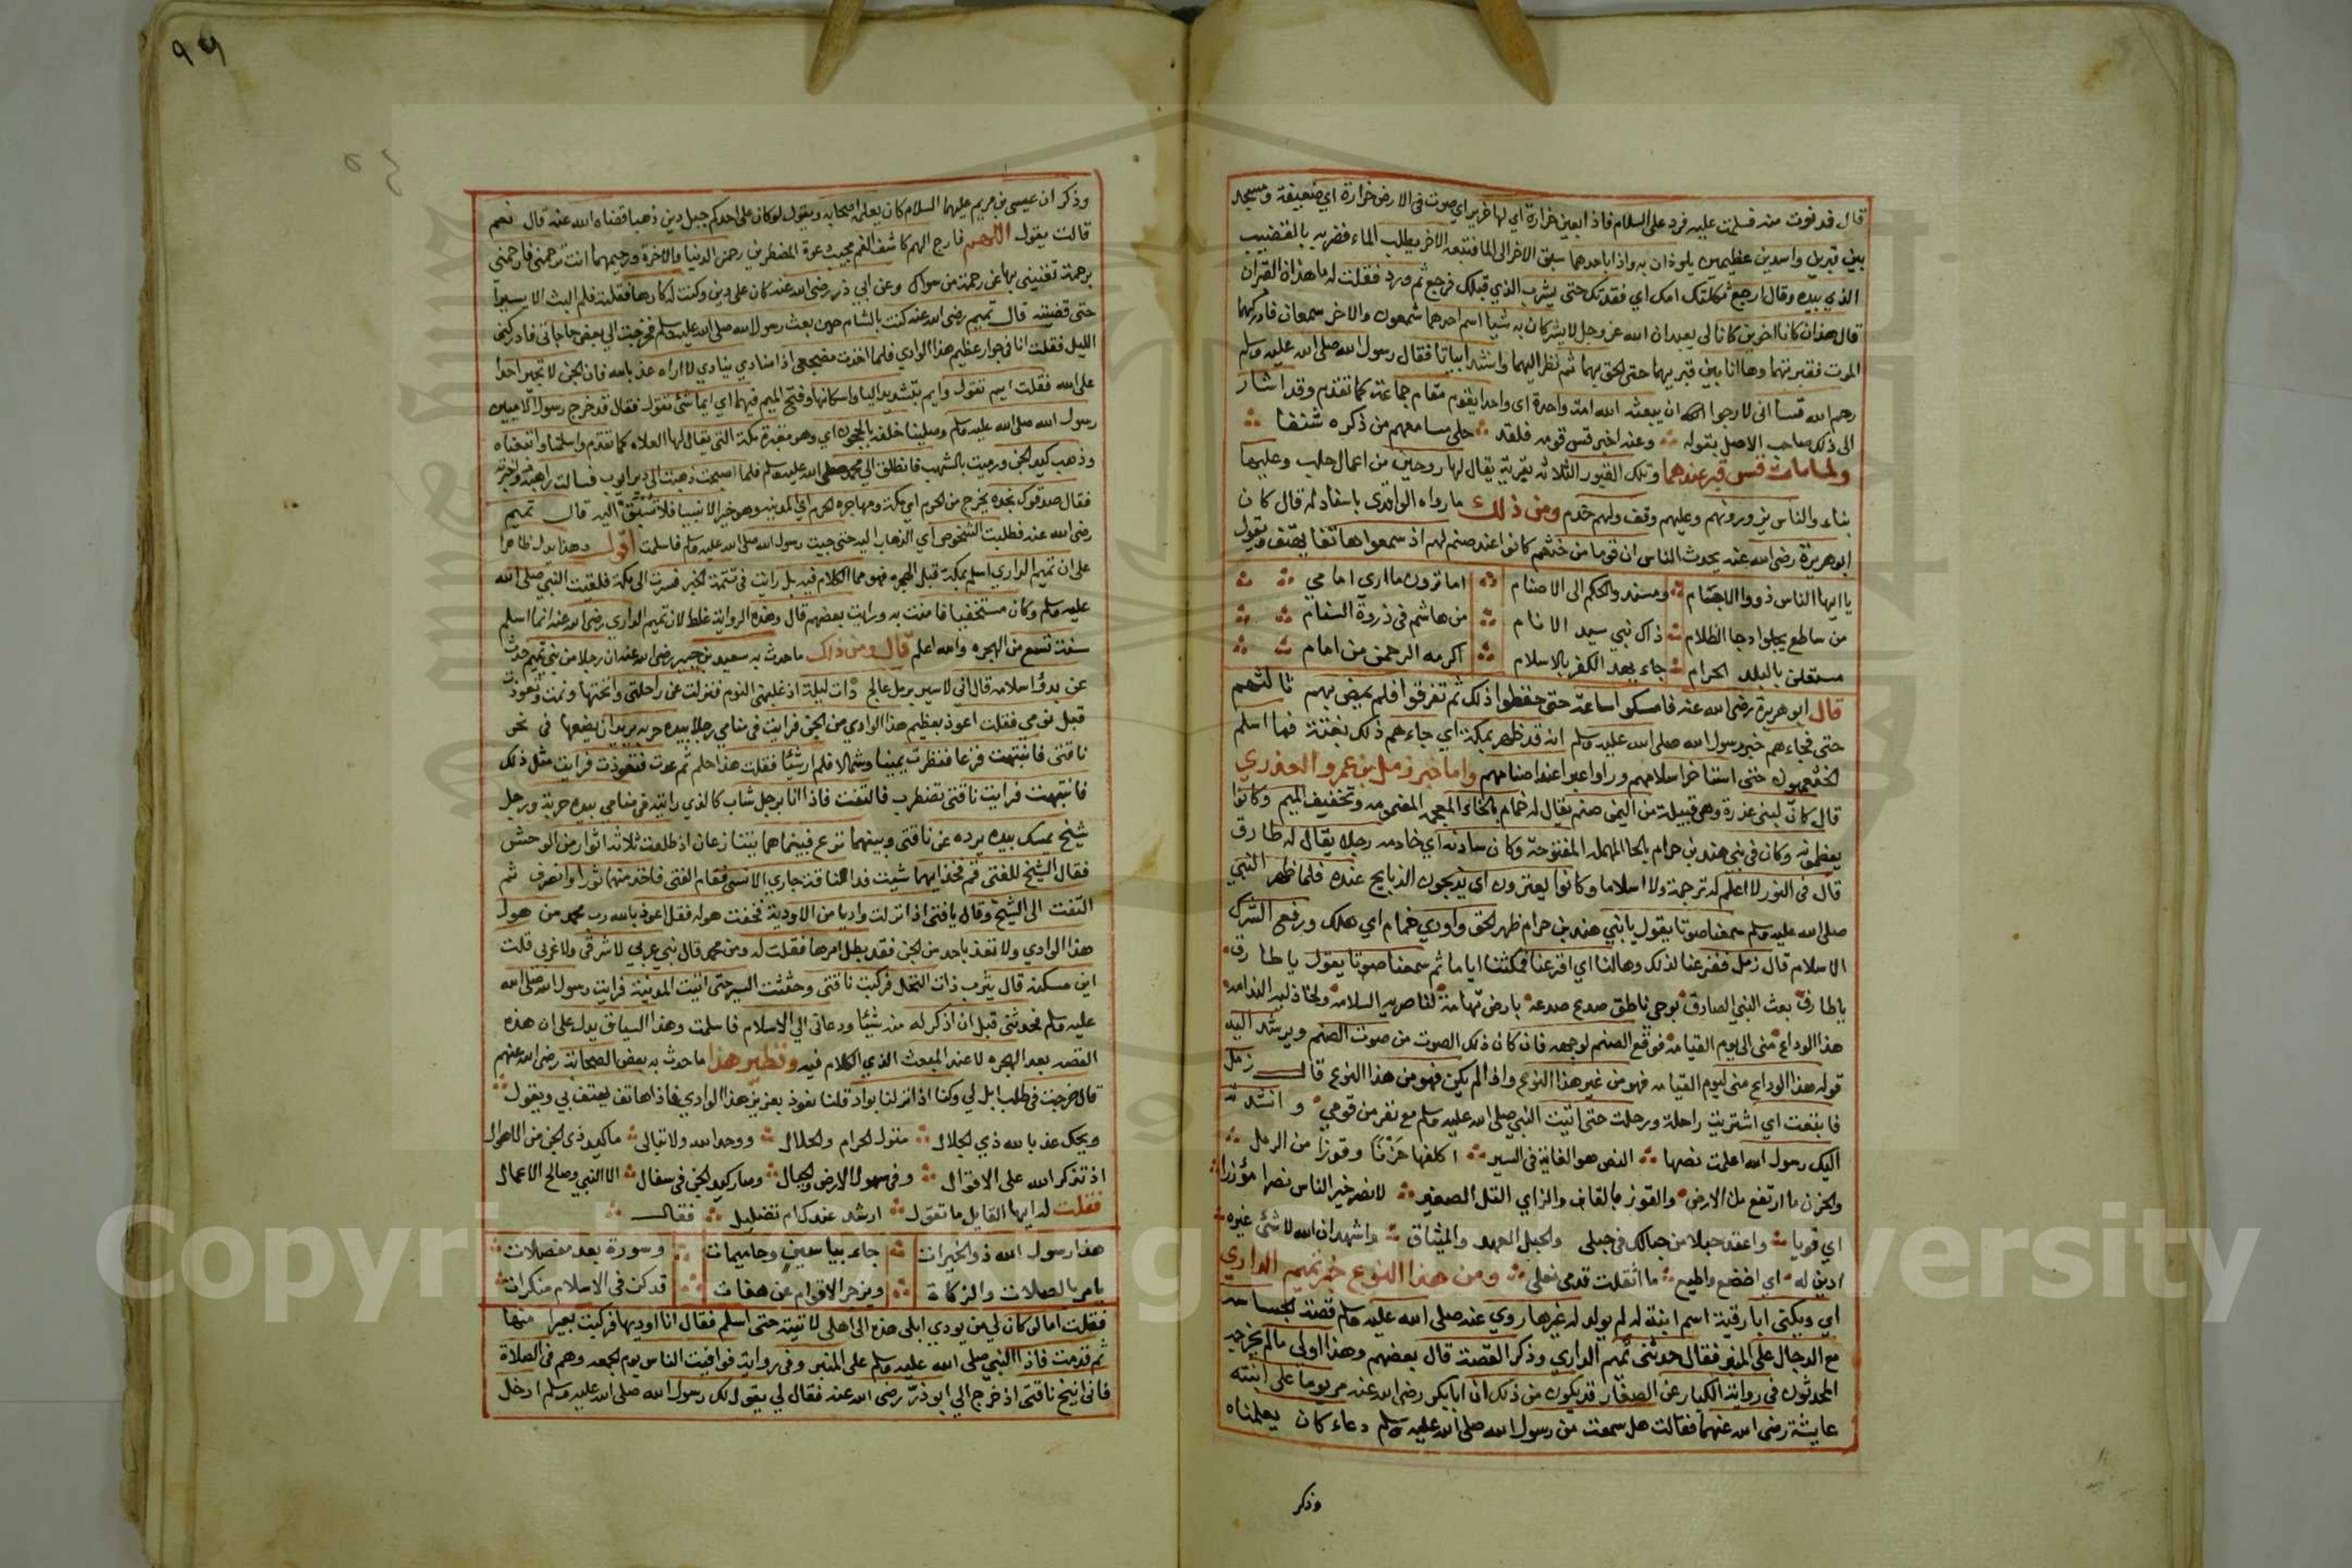 قال قد نوت منه فسلمت عليه فرد على السلام فاذا بعين خرارة اي لها خرير اي صوت في الارض خرارة اي ضعيفة ومسجد
بين قبرين واسدين عظيمين يلوذان به واذا باحدهما سبق الاخر الى الماء فتبعه الاخر يطلب الماء فضربه بالقضيب
الذي بيده وقال ارجع ثكلتك امك اي فقدتك حتى يشرب الذي قبلك فرجع ثم ورد فقلت له ما هذان القبران
قال هذان كانا اخوين كانا لي يعبدان الله عز وجل لا يشركان به شيا اسم احدهما شمعون والاخر سمعان فادركهما
الموت فقبرتهما وها انا بين قبريهما حتى الحق بهما ثم نظر اليهما وانشد ابياتا فقال رسول الله صلى الله عليه وسلم
رحم الله قسا اني لارجو الله ان يبعثه الله امة واحدة اي واحدا يقوم مقام جماعة كما تقدم وقد اشار
الى ذلك صاحب الاصل بقوله وعنه اخبر قس قومه فلقد حلى مسامعهم من ذكره شنفا
ولما مات قس قبر عندهما وتلك القبور الثلاثة بقرية يقال لها روحين من اعمال حلب وعليها
بناء والناس يزورونهم وعليهم وقف ولهم خدم ومن ذلك ما رواه الواقدي باسناد له قال كان
ابو هريرة رضي الله عنه يحدث الناس ان قوما من خثعم كانوا عند صنم لهم اذ سمعوا هاتفا يهتف ويقول
يا ايها الناس ذووا الاجسام ومسند والحكم الى الاصنام اما ترون ما اري امامي
من ساطع يجلوا دجا الظلام ذاك نبي سيد الانام من هاشم في ذروة السنام
مستعلن بالبلد الحرام جاء بهد الكفر بالاسلام اكرمه الرحمن من امام
قال ابو هريرة رضي الله عنه فامسكوا ساعة حتى حفظوا ذلك ثم تفرقوا فلم يمض بهم ثالثهم
حتى فجاءهم خبر رسول الله صلى الله عليه وسلم انه قد ظهر بمكة اي جاءهم ذلك بغتة فما اسلم
الخثعميون حتى استاخر اسلامهم وراوا عبرا عند اصنامهم واما خبر زمل بن عمرو العذري
قال كان لبني عذرة وهي قبيلة من اليمن صنم يقال له خمام بالخاء المعجمة المضمومة وتخفيف الميم وكانوا
يعظمونه وكان في بني هند بن حرام بالحا المهملة المفتوحة وكان سادنه اي خادمه رجلا يقال له طارق
قال في النور لا اعلم له ترجمة ولا اسلاما وكانوا يعترون اي يذبحون الذبايح عنده فلما ظهر النبي
صلى الله عليه وسلم سمعنا صوتا يقول يا بني هند بن حرام ظهر الحق واودي خمام اي هلك ورفع الشرك
الاسلام قال زمل ففزعنا لذلك وهالنا اي افزعنا فمكثنا اياما ثم سمعنا صوتا يقول يا طارق
يا طارق بعث النبي الصادق بوحي ناطق صدع صدعة بارض تهامة لناصريه السلامة ولخاذليه الندامة
هذا الوداع مني الى يوم القيامة فوقع الصنم لوجهه فان كان ذلك الصوت من صوت الصنم ويرشد اليه
قوله هذا الوداع مني ليوم القيامة فهو من غير هذا النوع وان لم يكن فهو من هذا النوع قال زمل
فابتعت اي اشتريت راحلة ورحلت حتى اتيت النبي صلى الله عليه وسلم مع نفر من قومي وانشدته
اليك رسول الله اعملت نصها النص هو الغاية في السير اكلفها حزنا وقوزا من الرمل
والحزن ما ارتفع من الارض والقوز بالقاف والزاي التل الصغير لانصر خير الناس نصرا مؤزرا
اي قويا واعقد حبلا من حبالك في حبلي والحبل العهد والميثاق واشهد ان الله لا شئ غيره
ادين له اي اخضع واطيع ما اثقلت قدمي نعلي ومن هذا النوع خبر تميم الداري
اي ويكنى ابا رقية اسم ابنة له لم يولد له غيرها روي عنه صلى الله عليه وسلم قصة الجساسة
مع الدجال على المنبر فقال حدثني تميم الداري وذكر القصة قال بعضهم وهذا اولى ما لم يخرجه
المحدثون في رواية الكبار عن الصغار قد يكون من ذلك ان ابا بكر رضي الله عنه مر يوما على ابنته
عايشة رضي الله عنهما فقالت هل سمعت من رسول الله صلى الله عليه وسلم دعاء كان يعلمناه
وذكر
٩٦
٥٤
وذكر ان عيسى بن مريم عليهما السلام كان يعلمه اصحابه ويقول لو كان على احدكم جبل دين ذهبا قضاه الله عنه قال نعم
قالت يقول اللهم فارج الهم كاشف الغم مجيب دعوة المضطرين رحمن الدنيا والاخرة ورحيمهما انت ترحمني فارحمني
برحمة تغنيني بها عن رحمة من سواك وعن ابي ذر رضي الله عنه كان على دين وكنت له كارها فقلته فلم البث الا يسيرا
حتى قضيته قال تميم رضي الله عنه كنت بالشام حين بعث رسول الله صلى الله عليه وسلم فخرجت الى بعض حاجاتي فادركني
الليل فقلت انا في جوار عظيم هذا الوادي فلما اخذت مضجعي اذا منادي ينادي لا اراه عذ بالله فان الجن لا تجير احدا
على الله فقلت ايم تقول وايم بتشديد اليا واسكانها وفتح الميم فيهما اي ايما شئ تقول فقال قد خرج رسول الاميين
رسول الله صلى الله عليه وسلم وصلينا خلفه بالحجون اي وهو مقبرة مكة التي يقال لها العلاه كما تقدم واسلمنا واتبعناه
وذهب كيد الجن ورميت بالشهب فانطلق الى محمد صلى الله عليه وسلم فلما اصبحت ذهبت الى دير ايوب فسالت راهبه واخبرته
فقال صدقوك نجده يخرج من الحرم اي مكة ومهاجره الحرم اي المدينة وهو خير الانبيا فلا تسبق اليه قال تميم
رضي الله عنه فطلبت الشخوص اي الذهاب اليه حتى جيت رسول الله صلى الله عليه وسلم فاسلمت اقول وهذا يدل ظاهرا
على ان تميم الداري اسلم بمكة قبل الهجرة فهو مما الكلام فيه بل رايت في تتمة الخبر فسرت الى مكة فلقيت النبي صلى الله
عليه وسلم وكان مستخفيا فامنت به ورايت بعضهم قال وهذه الرواية غلط لان تميم الداري رضي الله عنه انما اسلم
سنة تسع من الهجرة والله اعلم قال ومن ذلك ما حدث به سعيد بن جبير رضي الله عنه ان رجلا من بني تميم حدث
عن بدؤ اسلامه قال اني لاسير برمل عالج ذات ليلة اذ غلبني النوم فنزلت عن راحلتي وانختها ونمت وتعوذت
قبل نومي فقلت اعوذ بعظيم هذا الوادي من الجن فرايت في منامي رجلا بيده حربة يريد ان يضعها في نحر
ناقتي فانتبهت فزعا فنظرت يمينا وشمالا فلم ار شيئا فقلت هذا حلم ثم عدت فتعوذت فرايت مثل ذلك
فانتبهت فرايت ناقتي تضطرب فالتفت فاذا انا برجل شاب كالذي رايته في منامي بيده حربة ورجل
شيخ يمسك بيده يرده عن ناقتي وبينهما نزع فبينما هما يتنازعان اذ طلعت ثلاثة اثوار من الوحش
فقال الشيخ للفتى قم فخذ ايهما شيت فداء لناقة جاري الانسي فقام الفتى فاخذ منهما ثورا وانصرف ثم
التفت الى الشيخ وقال يا فتى اذا نزلت واديا من الاودية فخفت هوله فقل اعوذ بالله رب محمد من هول
هذا الوادي ولا تعذ باحد من الجن فقد بطل امرها فقلت له ومن محمد قال نبي عربي لا شرقي ولا غربي قلت
اين مسكنه قال يثرب ذات النخل فركبت ناقتي وحثثت السير حتى اتيت المدينة فرايت رسول الله صلى الله
عليه وسلم فحدثني قبل ان اذكر له منه شيئا ودعاني الى الاسلام فاسلمت وهذا السياق يدل على ان هذه
القصة بعد الهجرة لا عند المبعث الذي الكلام فيه ونظير هذا ما حدث به بعض الصحابة رضي الله عنهم
قال خرجت في طلب ابل لي وكنا اذا نزلنا بواد قلنا نعوذ بعزيز هذا الوادي فاذا هاتف يهتف بي ويقول
ويحك عذ بالله ذي الجلال منزل الحرام والحلال ووحد الله ولا تبالى ما كيد ذي الجن من الاهوال
اذ تذكر الله على الاقوال وفي سهول الارض والجبال وصار كيد الجن في سفال الا النبي وصالح الاعمال
فقلت له ايها القايل ما تقول ارشد عندك ام تضليل فقال
هذا رسول الله ذو الخيرات جاء بياسين وحاميمات وسورة بعد مفصلات
يامر بالصلات والزكاة ويزجر الاقوام عن هفات قد كن في الاسلام منكرات
فقلت اما لو كان لي من يودي ابلي هذه الى اهلي لاتيته حتى اسلم فقال انا اوديها فركبت بعيرا منها
ثم قدمت فاذا النبي صلى الله عليه وسلم على المنبر وفي رواية فوافيت الناس يوم الجمعة وهم في الصلاة
فاني انيخ ناقتي اذ خرج الي ابو ذر رضي الله عنه فقال لي يقول لك رسول الله صلى الله عليه وسلم ادخل
Copyright © King Saud University